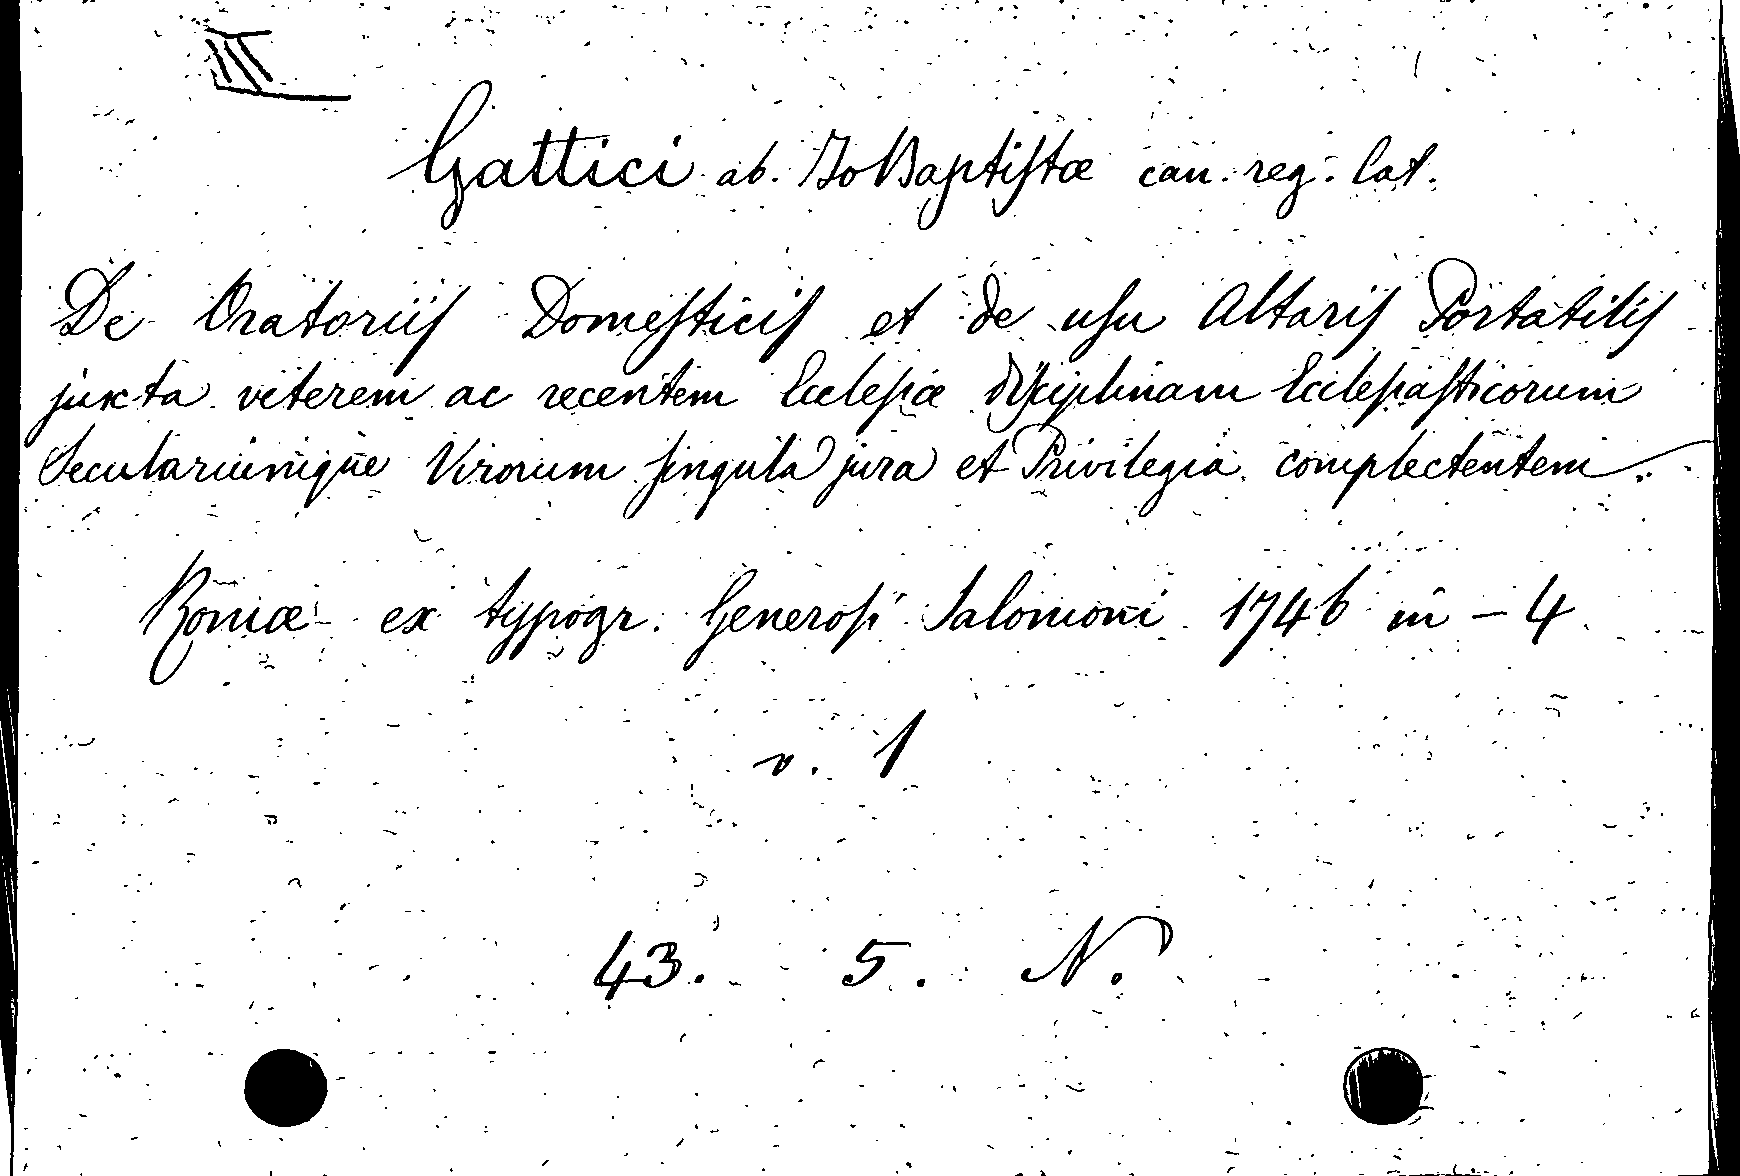 III
Gattici ab. Jo Baptistæ can. reg. lat.
De Oratoriis Domesticis et de usu Altaris Portatilis
juxta veterem ac recentem Ecclesiæ disciplinam Ecclesiasticorum
Seculariumque Virorum singula jura et Privilegia complectentem.
Romæ ex typogr. Generosi Salomoni 1746 in – 4
v. 1
43. 5. N.